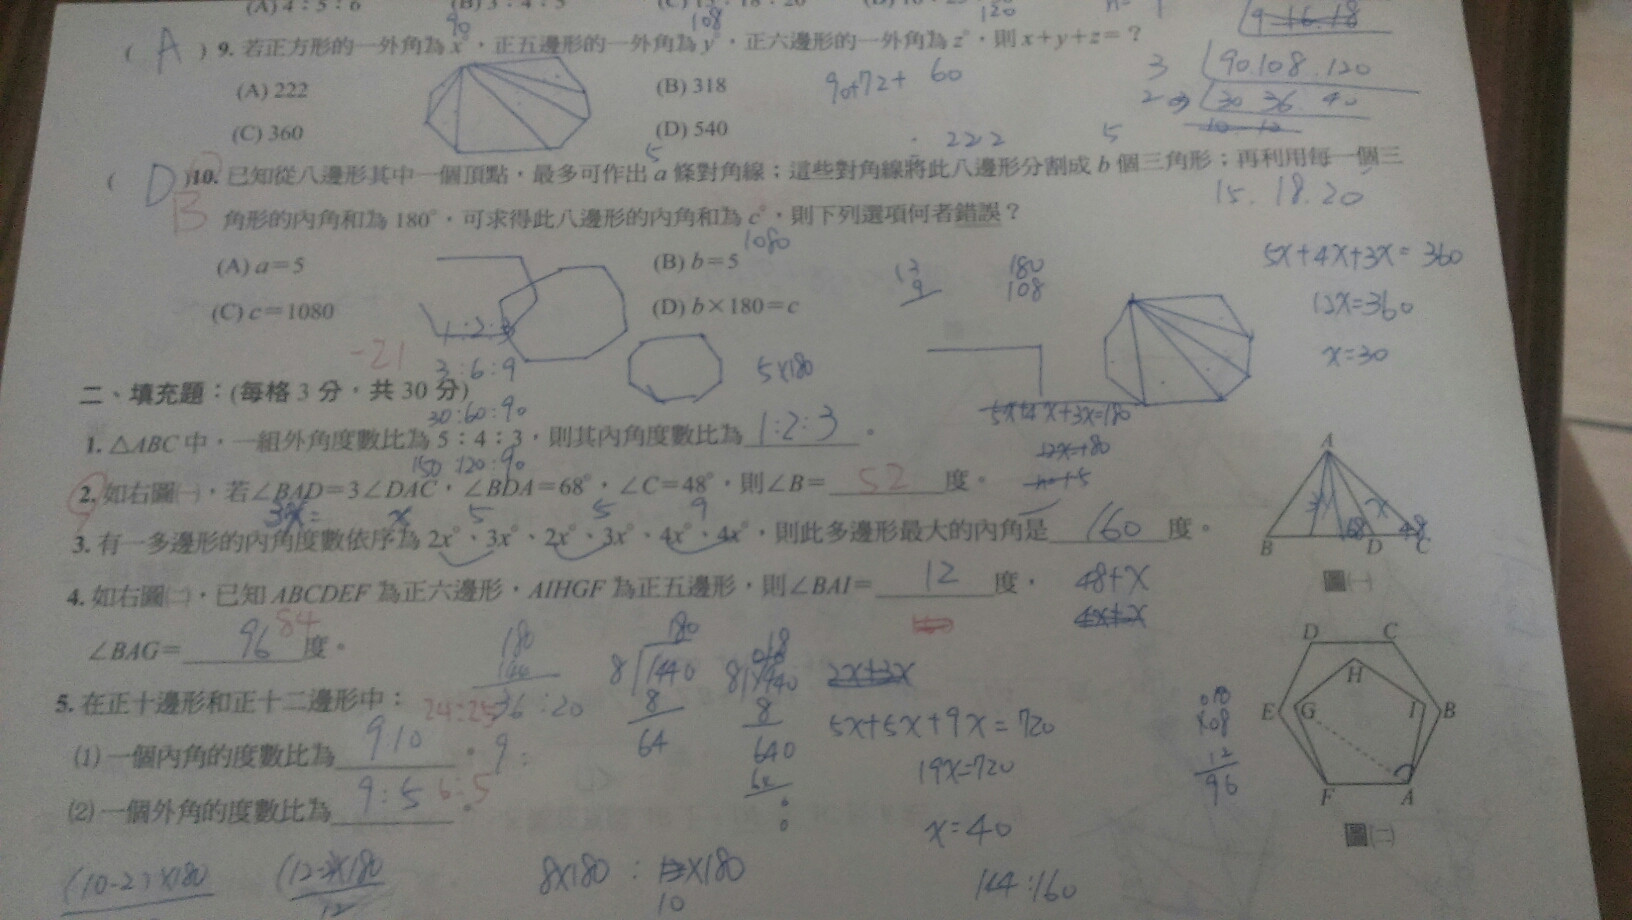 (A) 4：5：6 (B) 3：4：5
90 108 120
( A ) 9. 若正方形的一外角為x°，正五邊形的一外角為y°，正六邊形的一外角為z°，則x+y+z=？
(A) 222 (B) 318
(C) 360 (D) 540
90+72+ 60
222
9 16 18
3 90.108.120
30 36 40
15. 18. 20
5
( D )10. 已知從八邊形其中一個頂點，最多可作出a條對角線；這些對角線將此八邊形分割成b個三角形；再利用每一個三
B 角形的內角和為180°，可求得此八邊形的內角和為c°，則下列選項何者錯誤？
1080
(A) a=5 (B) b=5
(C) c=1080 (D) b×180=c
180
108
5x+4x+3x=360
12x=360
x=30
-21
1:2:3
3:6:9
5×180
二、填充題：(每格3分，共30分)
30:60:90
5x+4x+3x=180
1. △ABC中，一組外角度數比為5：4：3，則其內角度數比為 1:2:3 。
150 120:90
2. 如右圖㈠，若∠BAD=3∠DAC，∠BDA=68°，∠C=48°，則∠B= 52 度。
3x= x 5 5 9
3. 有一多邊形的內角度數依序為2x°、3x°、2x°、3x°、4x°、4x°，則此多邊形最大的內角是 160 度。
A
x
68 48
B D C
圖㈠
4. 如右圖㈡，已知ABCDEF為正六邊形，AIHGF為正五邊形，則∠BAI= 12 度，
48+x
∠BAG= 96 84 度。
180
144
36:20
180
8 1440
8
64
8
640
2x+3x
5x+5x+9x=720
19x=720
x=40
108
12
96
D C
H
E G I B
F A
圖㈡
5. 在正十邊形和正十二邊形中：
24:25
(1) 一個內角的度數比為 9:10 。
9:
(2) 一個外角的度數比為 9:5 6:5 。
(10-2)×180
(12-2)×180
12
8×180 : ×180
10
144:160